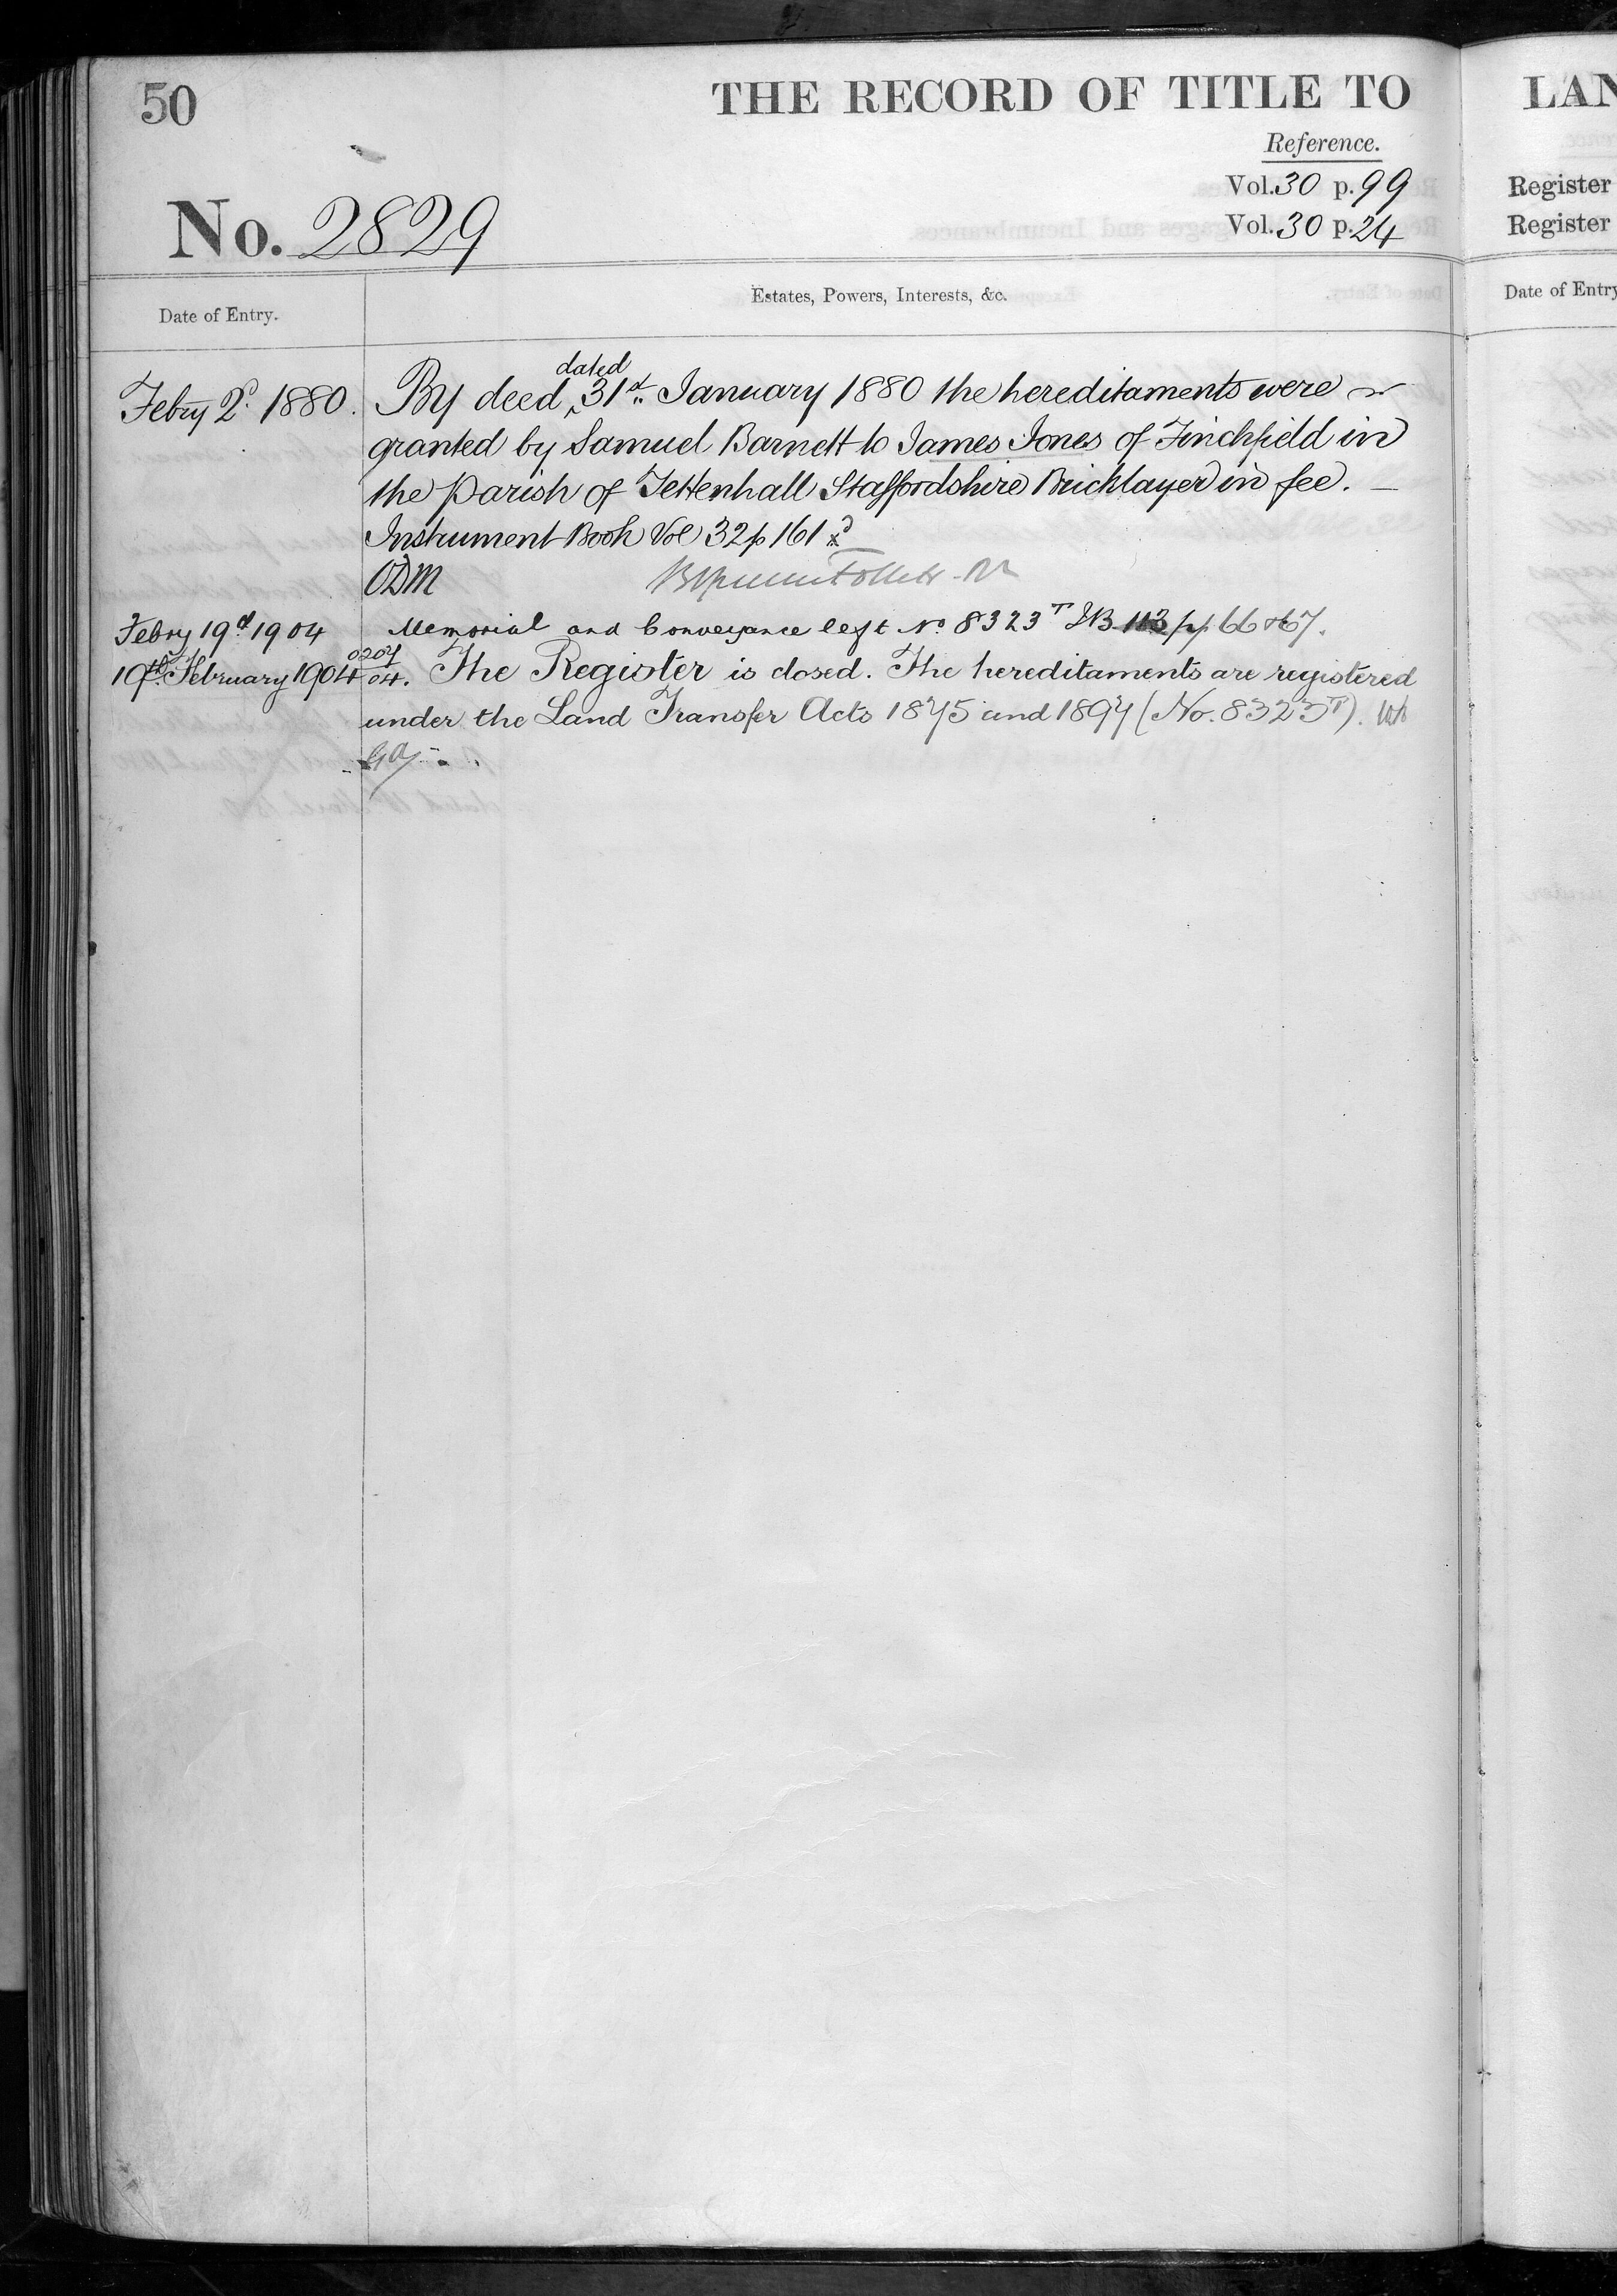 50
THE RECORD OF TITLE TO
LAN
Reference.
Vol. 30 p. 99
Register
Vol. 30 p. 24
Register
No. 2829
Date of Entry.
Estates, Powers, Interests, &c.
Date of Entry
Febry 2d. 1880.
By deed dated 31st January 1880 the hereditaments were
granted by Samuel Barnett to James Jones of Finchfield in
the parish of Tettenhall Staffordshire Bricklayer in fee. —
Instrument Book Vol 32 p 161
ODM
Febry 19d 1904
Memorial and Conveyance left No 8323T IB 113 pp 66 & 67.
19th February 1904
0207
04.
The Register is closed. The hereditaments are registered
under the Land Transfer Acts 1875 and 1897 (No. 8323T).